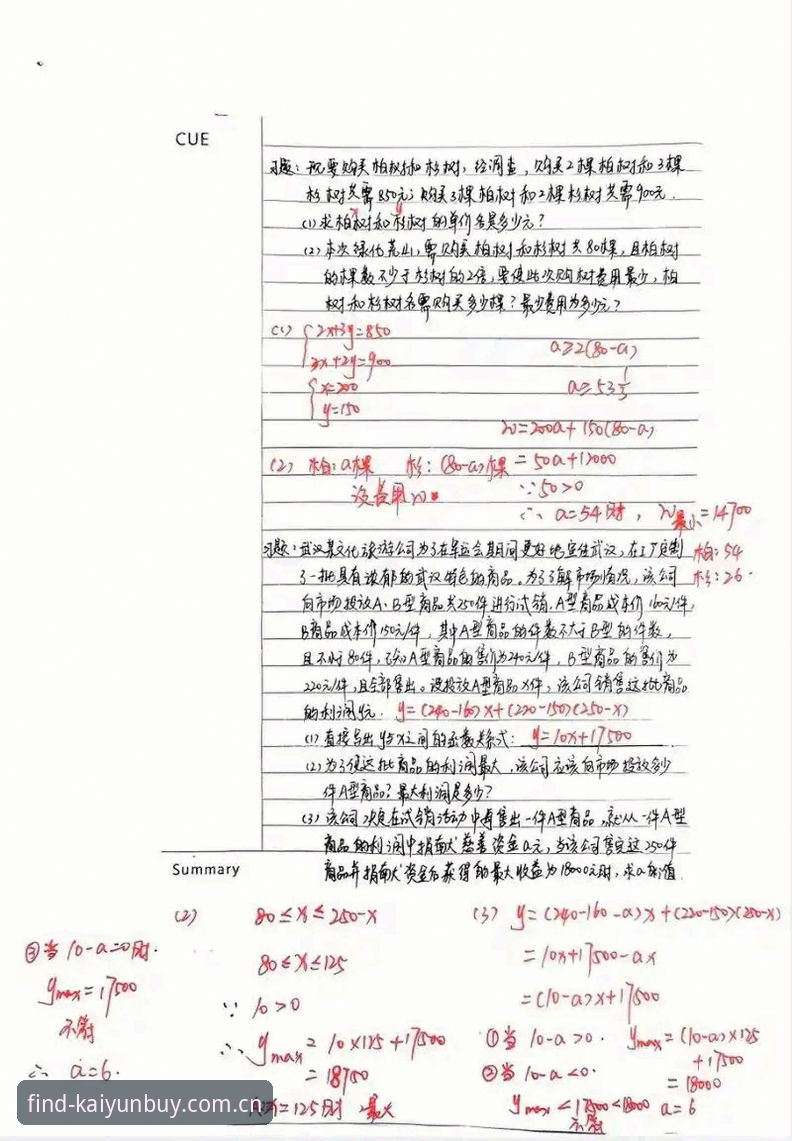 CUE
习题：现要购买柏树和杉树，经调查，购买2棵柏树和3棵
杉树共需850元；购买3棵柏树和2棵杉树共需900元．
x y
(1) 求柏树和杉树的单价各是多少元？
(2) 本次绿化荒山，需购买柏树和杉树共80棵，且柏树
的棵数不少于杉树的2倍，要使此次购树费用最少，柏
树和杉树各需购买多少棵？最少费用为多少元？
(1) { 2x+3y=850
3x+2y=900
{ x=200
y=150
a≥2(80-a)
a≥53 1/3
w=200a+150(80-a)
(2) 柏：a棵 杉：(80-a)棵 =50a+12000
设费用w
∵50>0
∴a=54时，w最小=14700
柏：54
杉：26.
习题：武汉某文化旅游公司为了在军运会期间更好地宣传武汉，在工厂定制
了一批具有浓郁的武汉特色的商品。为了了解市场情况，该公司
向市场投放A、B型商品共250件进行试销，A型商品成本价160元/件，
B商品成本价150元/件，其中A型商品的件数不大于B型的件数，
且不小于80件，已知A型商品的售价为240元/件，B型商品的售价为
220元/件，且全部售出。设投放A型商品x件，该公司销售这批商品
的利润y元． y=(240-160)x+(220-150)(250-x)
(1) 直接写出y与x之间的函数关系式： y=10x+17500
(2) 为了使这批商品的利润最大，该公司应该向市场投放多少
件A型商品？最大利润是多少？
(3) 该公司决定在试销活动中每售出一件A型商品，就从一件A型
商品的利润中捐献慈善资金a元，当该公司售完这250件
商品并捐献资金后获得的最大收益为18000元时，求a的值．
Summary
(2) 80≤x≤250-x
80≤x≤125
∵10>0
∴ymax=10×125+17500
=18750
x=125时 最大
(3) y=(240-160-a)x+(220-150)(250-x)
=10x+17500-ax
=(10-a)x+17500
①当 10-a>0. ymax=(10-a)×125
+17500
=18000
a=6
②当 10-a<0.
ymax<17500<18000
不符
③当 10-a=0时.
ymax=17500
不符
∴ a=6.
find-kaiyunbuy.com.cn